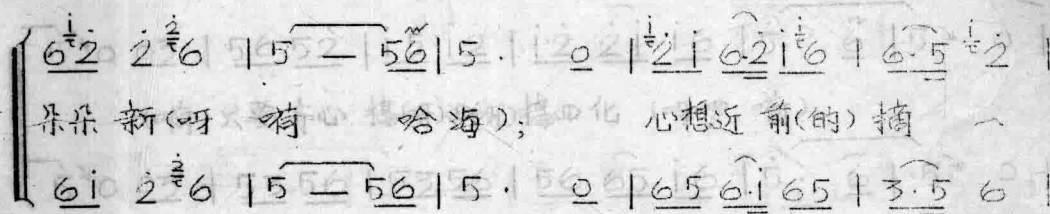 6 i 2̇ 2̇ 2̇ 6 | 5 — 5 6 | 5 · 0 | i 2̇ i 6 · 2̇ i i 6 | 6 · 5 i 2̇ |
朵朵 新(呀 嗬 哈 海); 心想近 前(的) 摘
6 i 2̇ 2̇ 6 | 5 — 5 6 | 5 · 0 | 6 5 6 · i 6 5 | 3 · 5 6 |